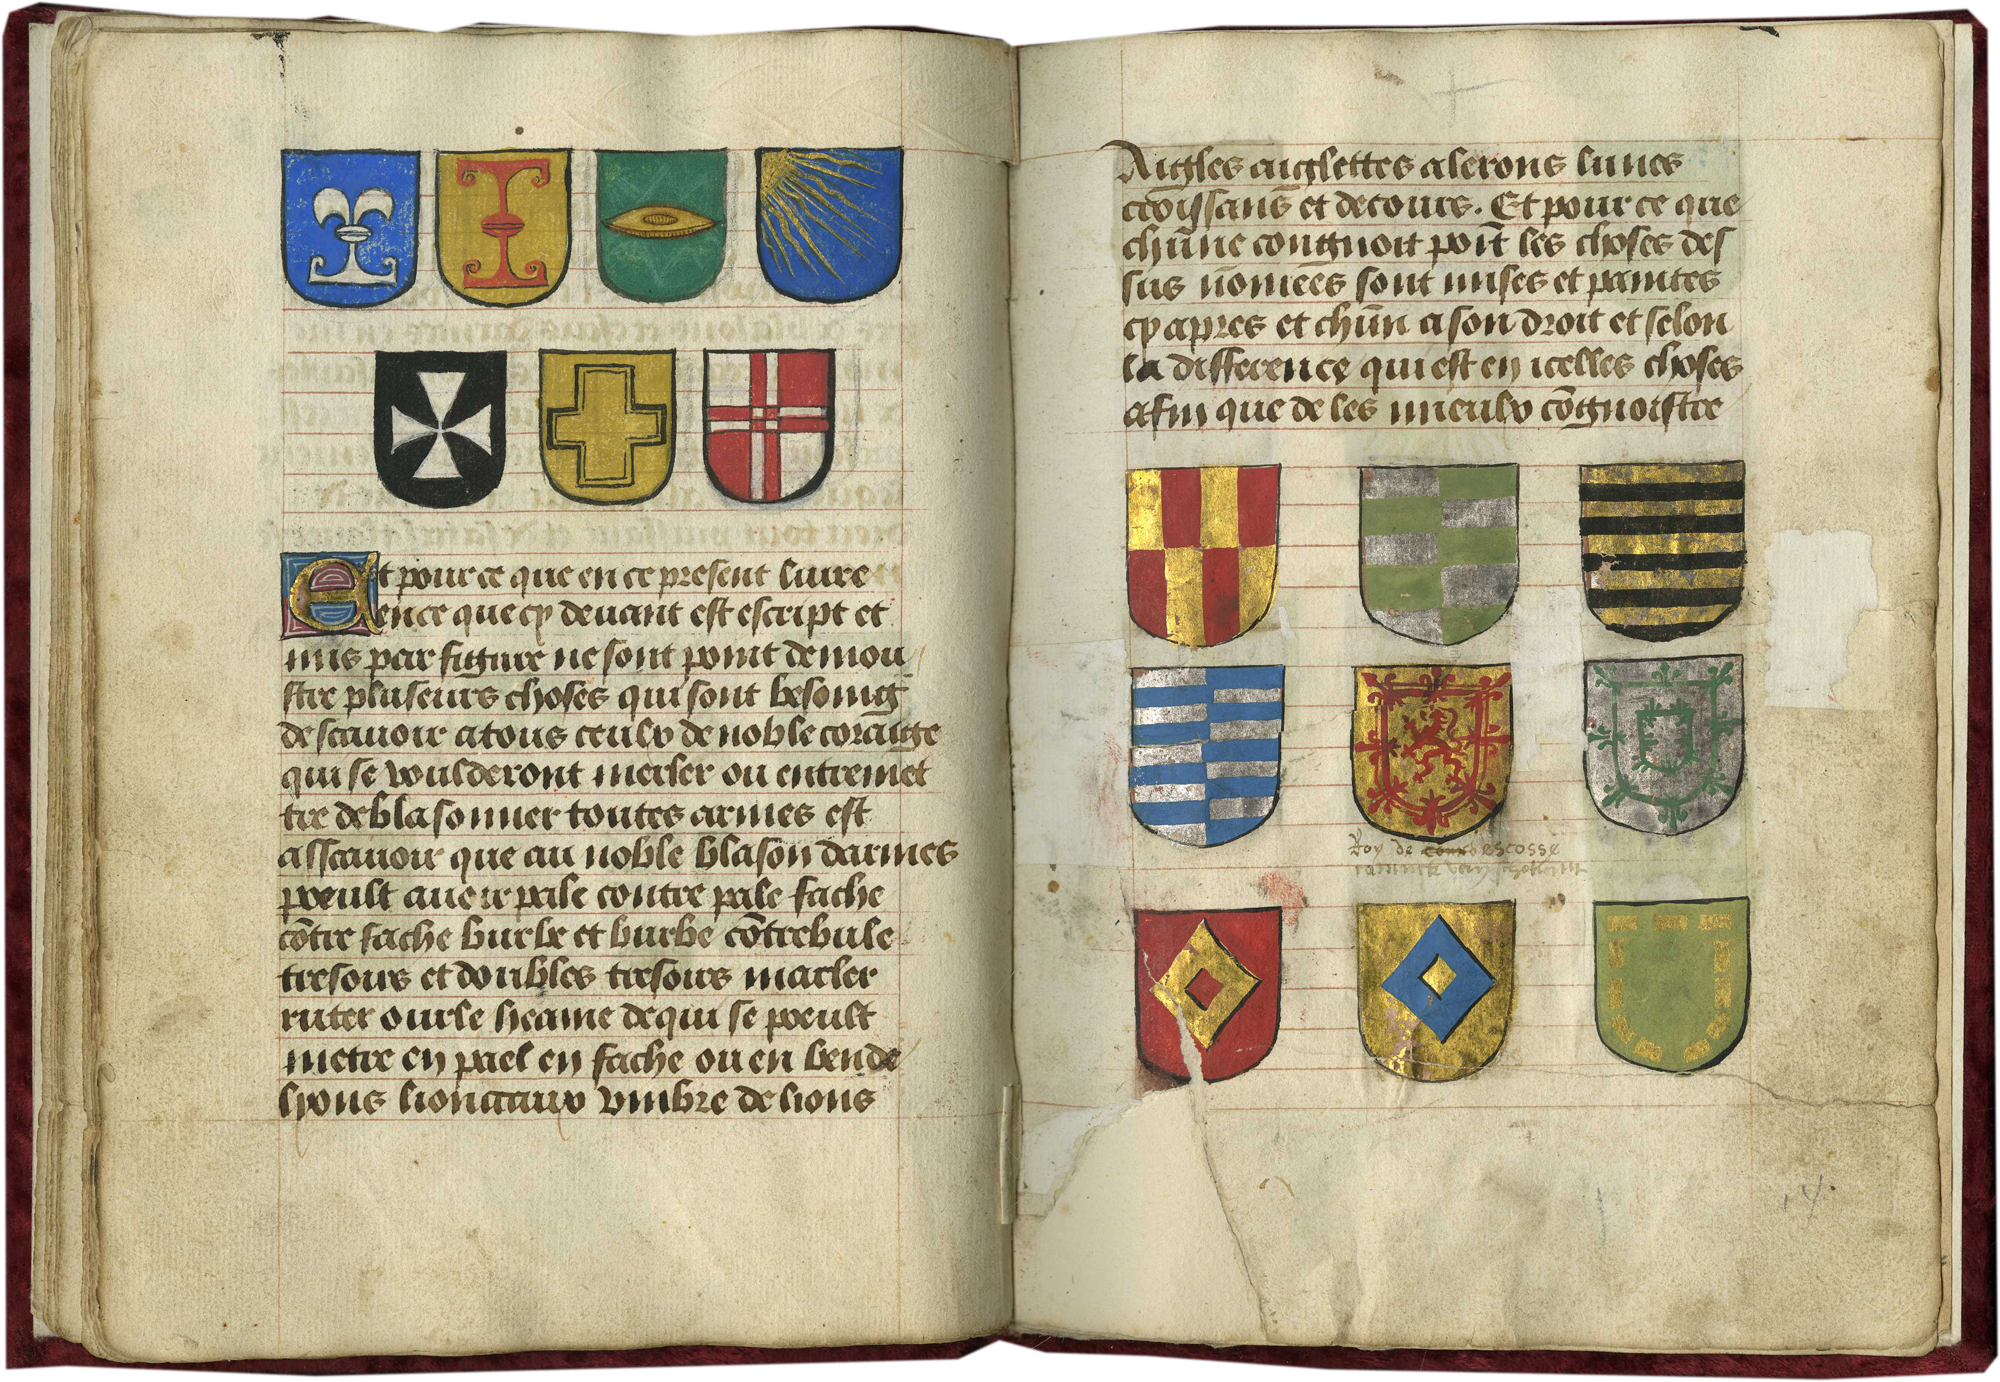 Et pour ce que en ce present liure
en ce que cy deuant est escript et
mis par figure ne sont point demou
stre pluseurs choses qui sont besoing
de scauoir a tous ceulx de noble coraige
qui se vouldront mesler ou entremet
tre de blasonner toutes armes est
assauoir que au noble blason darmes
poeult auoir pale contre pale fache
cōtre fache burle et burbe cōtrebule
tresours et doubles tresours macler
ruter ourle heame de qui se poeult
metre en pael en fache ou en bende
lyons lionceaux vmbre de lions
Aigles aiglettes alerons lunes
croissans et decours. Et pour ce que
chūne congnoit poīt les choses des
sus nōmees sont mises et paintes
cy apres et chūn a son droit et selon
la difference qui est en icelles choses
afin que de les mieulx cōgnoistre
Roy de escosse
14